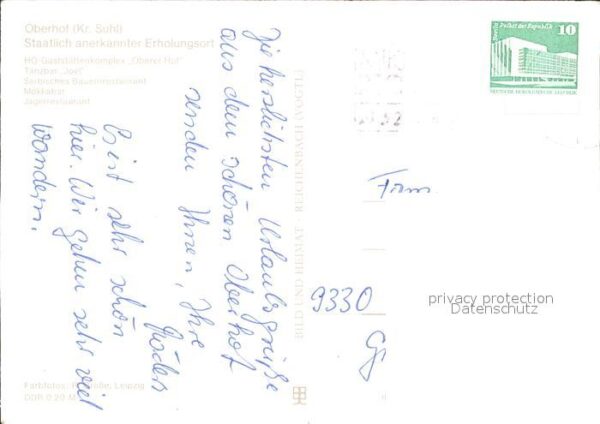 Oberhof (Kr. Suhl)
Staatlich anerkannter Erholungsort
HO-Gaststättenkomplex „Oberer Hof“
Tanzbar „Joel“
Serbisches Bauernrestaurant
Mokkabar
Jagdrestaurant
Die herzlichsten Urlaubsgrüße
aus dem schönen Oberhof
senden Ihnen, Ihre
Röders
Es ist sehr schön
hier. Wir gehen sehr viel
wandern.
Farbfotos: Leipzig
DDR 0,20 M
BILD UND HEIMAT · REICHENBACH (VOGTL)
Berlin Palast der Republik
10
DEUTSCHE DEMOKRATISCHE REPUBLIK
Fam.
9330
privacy protection
Datenschutz